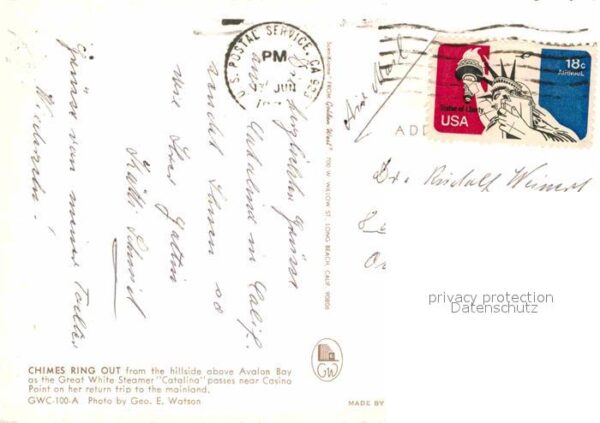 U.S. POSTAL SERVICE, CA
PM
JUN
18c
AIRMAIL
Statue of Liberty
USA
Air Mail
ADD
Dr. Rudolf Weinert
Herzliche Grüsse
Catalina in Calif.
sendet Ihnen
und Ihrer Gattin
Kätti Schmid
Grüsse von meiner Tochter
FROM Golden West
700 W. WILLOW ST. LONG BEACH, CALIF. 90806
privacy protection
Datenschutz
CHIMES RING OUT from the hillside above Avalon Bay
as the Great White Steamer "Catalina" passes near Casino
Point on her return trip to the mainland.
GWC-100-A Photo by Geo. E. Watson
GW
MADE BY